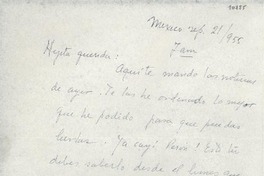 Mexico sep. 21/955
7 am
Hijita querida:
Aquí te mando las noticias
de ayer. Te las he ordenado lo mejor
que he podido para que puedas
leerlas. Ya cayó Perón! Eso tú
debes saberlo desde el lunes que